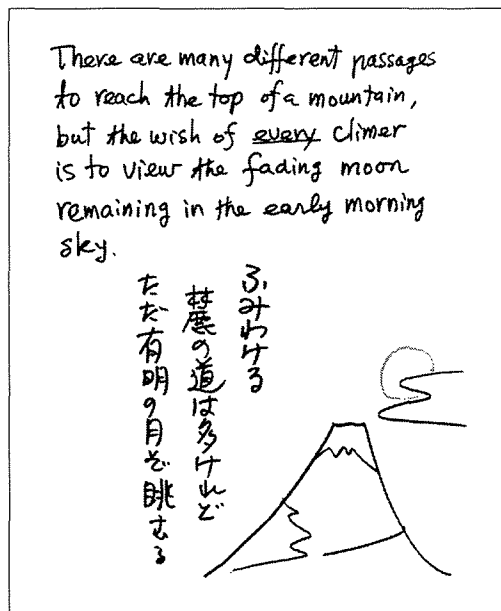 There are many different passages
to reach the top of a mountain,
but the wish of every climer
is to view the fading moon
remaining in the early morning
sky.
ふみわける
麓の道は多けれど
ただ有明の月ぞ眺むる